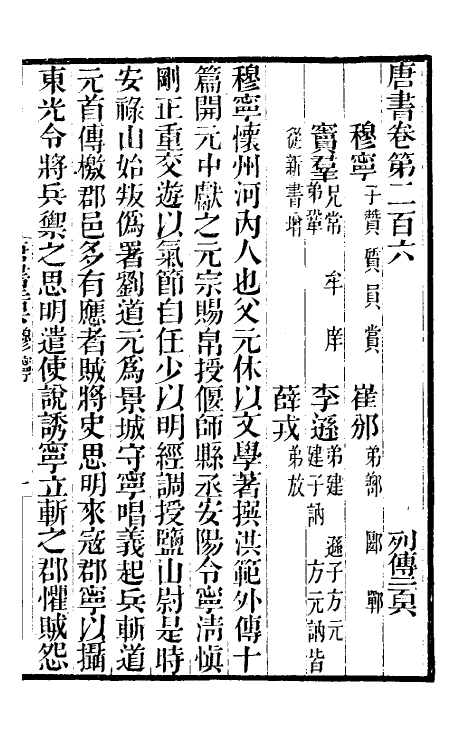 唐書卷第二百六　列傳一百六
穆寧子贊 質 員 賞　崔邠弟鄯 郾 鄲
竇羣兄常 牟 弟鞏 庠　李遜弟建 遜子方元 建子訥 方元訥皆
從新書增　薛戎弟放
穆寧懷州河內人也父元休以文學著撰洪範外傳十
篇開元中獻之元宗賜帛授偃師縣丞安陽令寧淸愼
剛正重交遊以氣節自任少以明經調授鹽山尉是時
安祿山始叛僞署劉道元爲景城守寧唱義起兵斬道
元首傳檄郡邑多有應者賊將史思明來寇郡寧以攝
東光令將兵禦之思明遣使說誘寧立斬之郡懼賊怨